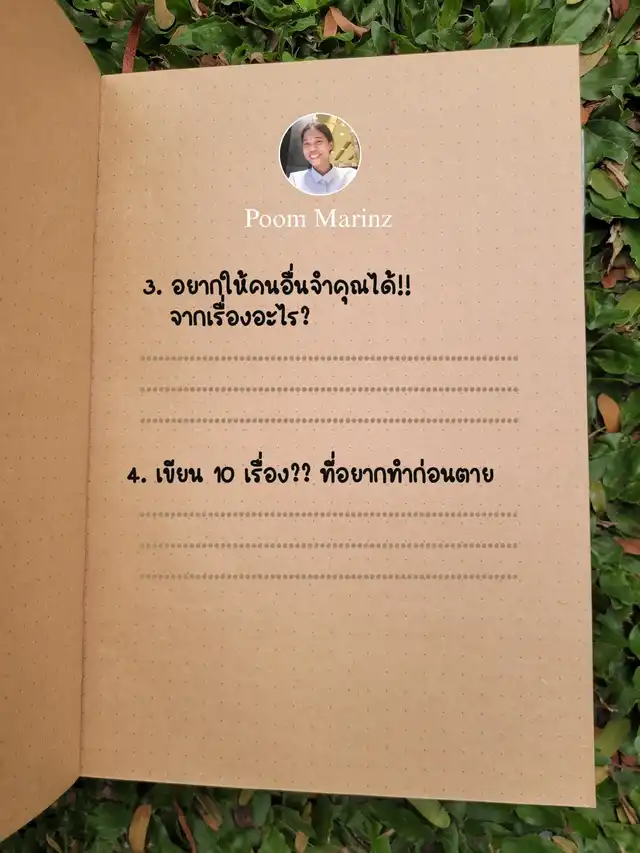 Poom Marinz
3. อยากให้คนอื่นจำคุณได้!!
จากเรื่องอะไร?
4. เขียน 10 เรื่อง?? ที่อยากทำก่อนตาย